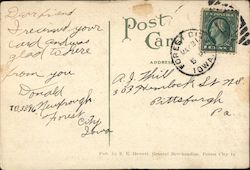 Dear friend
I received your
card and was
glad to here
from you
Donald
Forest
City
Iowa
Post
Card
FOREST CITY
IOWA
A.J. Hill
303 Hemlock St NS.
Pittsburgh
Pa.
Pub. by S. E. General Merchandise, Forest City Ia